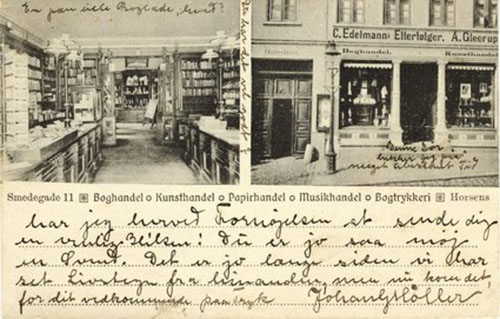 En pæn lille Boglade, hvad?
C. Edelmanns Efterfølger. A. Gleerup
Boghandel. Kunsthandel
Denne Dør
Smedegade 11 Boghandel Kunsthandel Papirhandel Musikhandel Bogtrykkeri Horsens
har jeg herved Fornøjelsen at sende dig
en venlig Hilsen! Du er jo saa
en Svend. Det er jo længe siden vi har
set Livstegn fra hinanden, men nu kom det,
for dit vedkommende